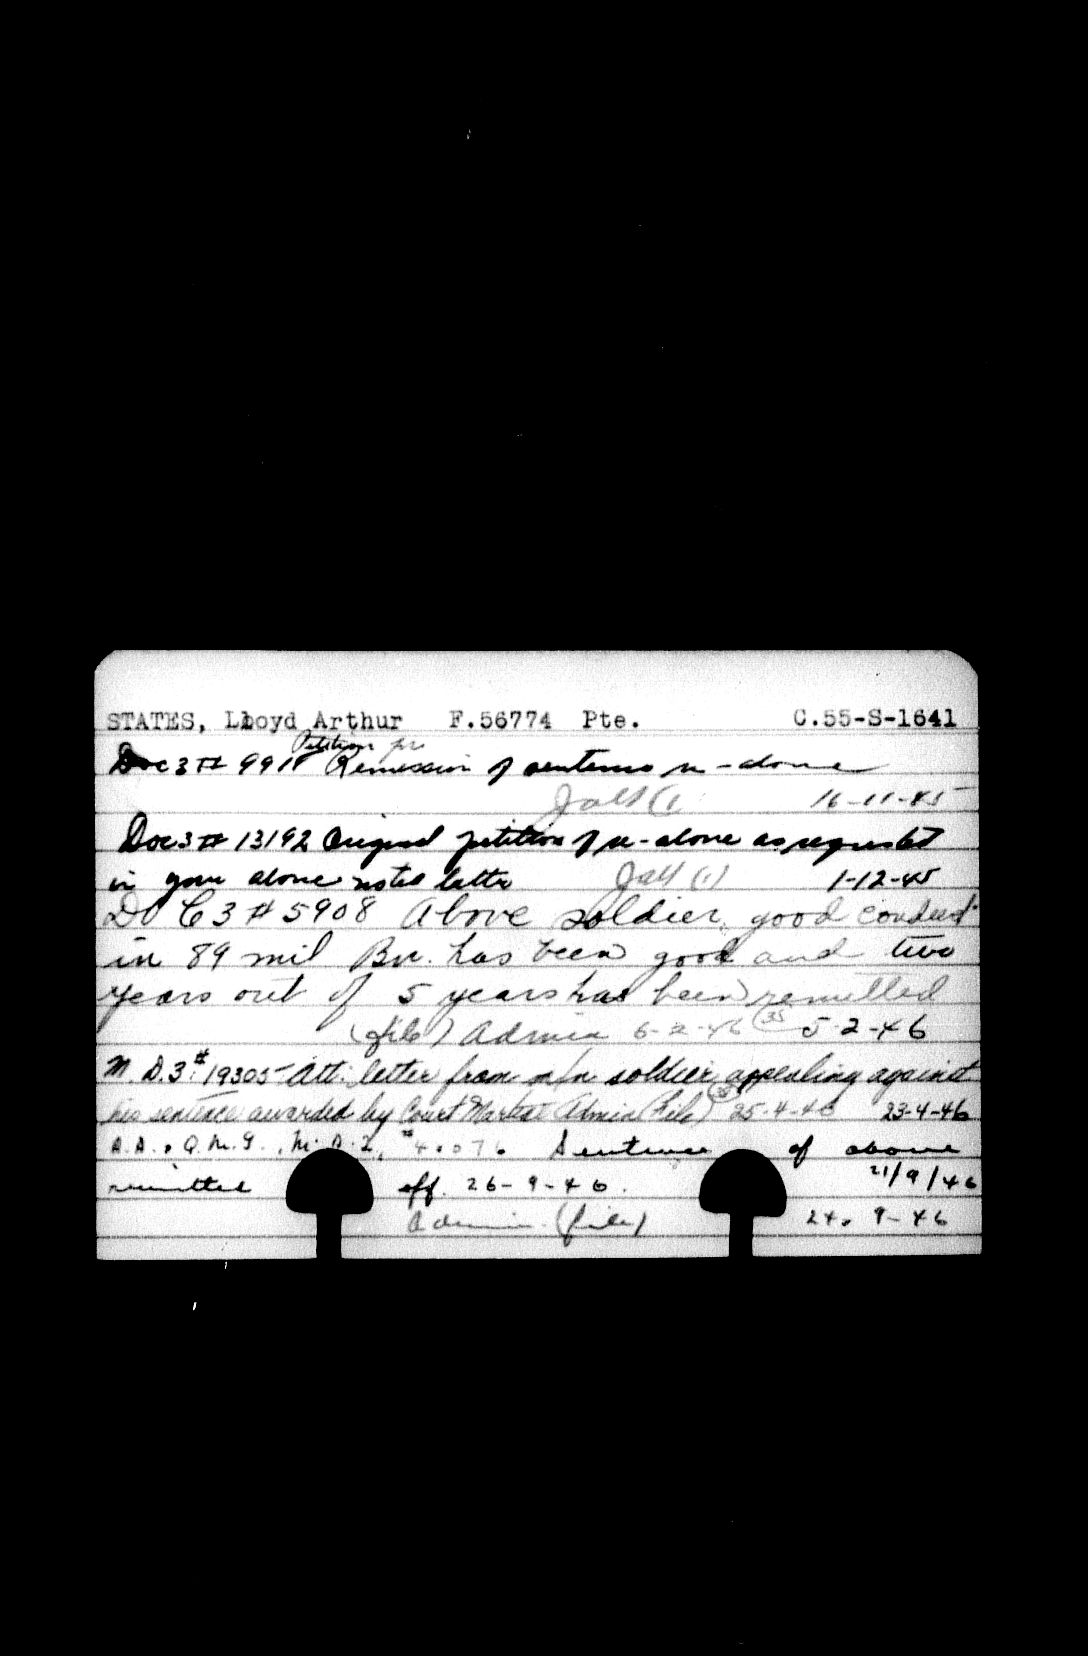 STATES, Lloyd Arthur F.56774 Pte. C.55-S-1641
Petition for
Doc 3 # 9918 Remission of sentence re - above
16-11-45
Doc 3 # 13192 Original petition of re-above as requested
in your above noted letter 1-12-45
Doc 3 # 5908 Above soldier, good conduct
in 89 mil Bn. has been good and two
years out of 5 years has been remitted
(file) Admin 6-2-46 (35) 5-2-46
M.D.3 # 19305 Att. letter from m/n soldier appealing against
his sentence awarded by Court Martial Admin (file) 25-4-46 23-4-46
A.A. & Q.M.G., M.D. 2, # 4076 Sentence of above
remitted eff. 26-9-46. 21/9/46
Admin. (file) 24. 9-46